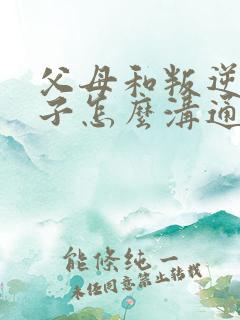 父母和叛逆
子怎麼溝通
能條純一
未任同意禁止转載